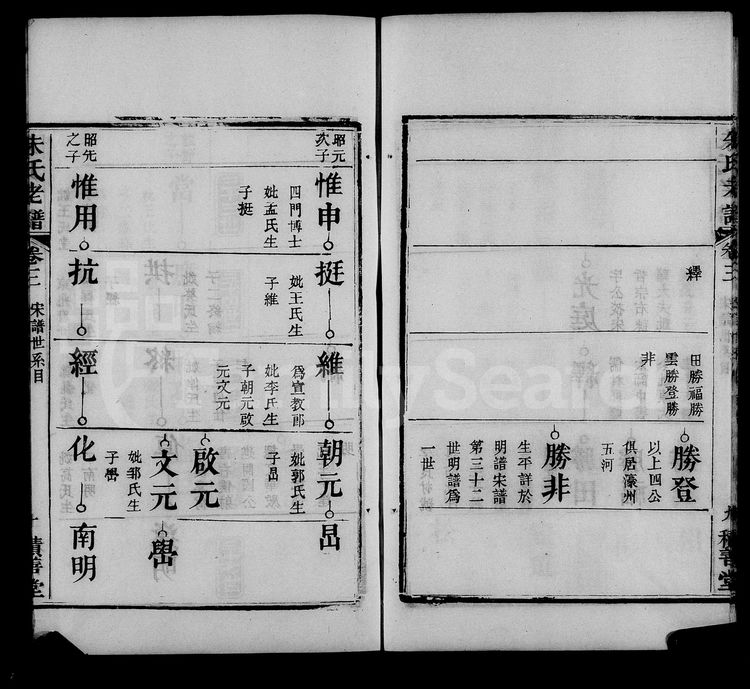 釋
田勝福勝
雲勝登勝
非
勝登
以上四公
俱居濠州
五河
勝非
生平詳於
明譜宋譜
第三十二
世明譜為
一世
積善堂
昭元
次子
惟申
四門博士
妣孟氏生
子挺
挺
妣王氏生
子維
維
為宣教郎
妣李氏生
子朝元啟
元文元
朝元
妣郭氏生
子昌
啟元
文元
妣邹氏生
子嚳
昌
嚳
昭先
之子
惟用
抗
經
化
南明
朱氏老譜
卷三
宋譜世系目
十
積善堂